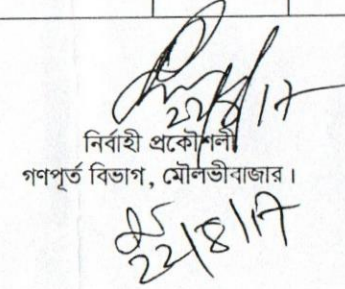 22/8/17
নির্বাহী প্রকৌশলী
গণপূর্ত বিভাগ, মৌলভীবাজার।
22/8/17